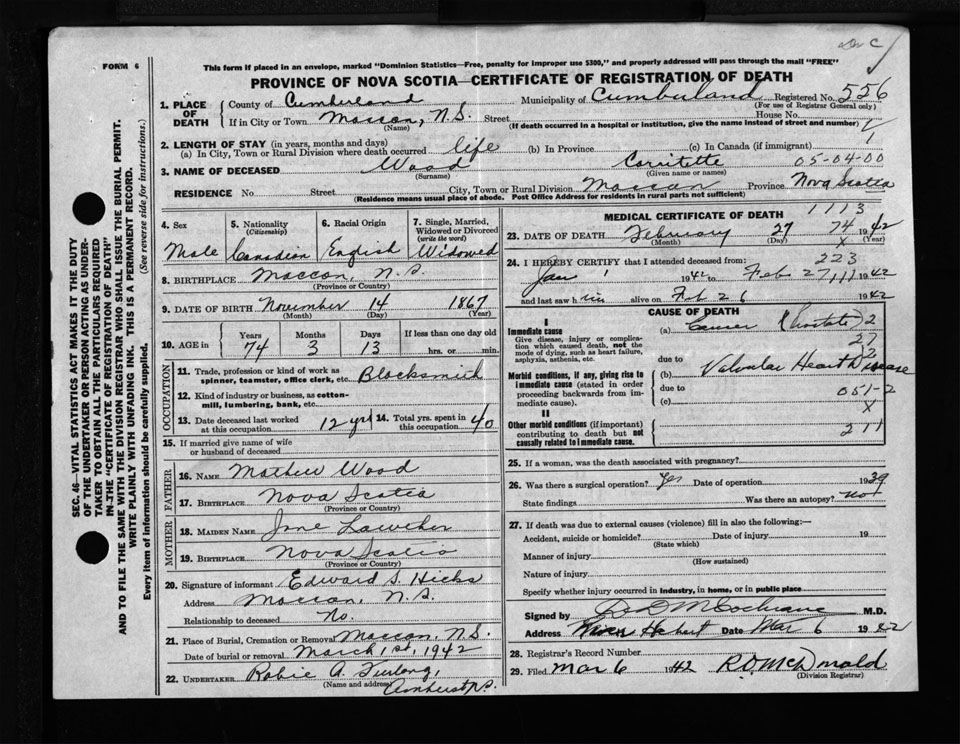 FORM 6
This form if placed in an envelope, marked "Dominion Statistics—Free, penalty for improper use $300," and properly addressed will pass through the mail "FREE"
PROVINCE OF NOVA SCOTIA—CERTIFICATE OF REGISTRATION OF DEATH
SEC. 46—VITAL STATISTICS ACT MAKES IT THE DUTY
OF THE UNDERTAKER OR PERSON ACTING AS UNDER-
TAKER TO OBTAIN ALL THE PARTICULARS REQUIRED
IN THE "CERTIFICATE OF REGISTRATION OF DEATH"
AND TO FILE THE SAME WITH THE DIVISION REGISTRAR WHO SHALL ISSUE THE BURIAL PERMIT.
WRITE PLAINLY WITH UNFADING INK. THIS IS A PERMANENT RECORD.
Every item of information should be carefully supplied. (See reverse side for instructions.)
1. PLACE OF DEATH
County of Cumberland Municipality of Cumberland Registered No. 556
(For use of Registrar General only)
If in City or Town Maccan, N.S. Street House No.
(Name) (If death occurred in a hospital or institution, give the name instead of street and number)
2. LENGTH OF STAY (in years, months and days) 1
(a) In City, Town or Rural Division where death occurred life (b) In Province (c) In Canada (if immigrant)
3. NAME OF DECEASED Wood 05-04-00
(Surname) (Given name or names)
RESIDENCE No Street City, Town or Rural Division Maccan Province Nova Scotia
(Residence means usual place of abode. Post Office Address for residents in rural parts not sufficient)
4. Sex Male
5. Nationality (Citizenship) Canadian
6. Racial Origin English
7. Single, Married, Widowed or Divorced (write the word) Widowed
8. BIRTHPLACE Maccan, N.S.
(Province or Country)
9. DATE OF BIRTH November 14 1867
(Month) (Day) (Year)
10. AGE in Years 74 Months 3 Days 13 If less than one day old hrs. or min.
OCCUPATION
11. Trade, profession or kind of work as spinner, teamster, office clerk, etc. Blacksmith
12. Kind of industry or business, as cotton-mill, lumbering, bank, etc.
13. Date deceased last worked at this occupation 12 yrs 14. Total yrs. spent in this occupation 40
15. If married give name of wife or husband of deceased
FATHER
16. NAME Mathew Wood
17. BIRTHPLACE Nova Scotia
(Province or Country)
MOTHER
18. MAIDEN NAME Jane
19. BIRTHPLACE Nova Scotia
(Province or Country)
20. Signature of informant Edward S. Hicks
Address Maccan, N.S.
Relationship to deceased No.
21. Place of Burial, Cremation or Removal Maccan, N.S.
Date of burial or removal March 1st, 1942
22. UNDERTAKER Robie A. Furlong
(Name and address) Amherst N.S.
MEDICAL CERTIFICATE OF DEATH 1113
23. DATE OF DEATH February 27 74 1942
(Month) (Day) X (Year)
24. I HEREBY CERTIFY that I attended deceased from: 223
Jan 1 1942 to Feb 27, 1942
and last saw him alive on Feb 26 1942
CAUSE OF DEATH
I
Immediate cause
Give disease, injury or complication which caused death, not the mode of dying, such as heart failure, asphyxia, asthenia, etc.
(a) Cancer Prostate 2
27
due to 2
Morbid conditions, if any, giving rise to immediate cause (stated in order proceeding backwards from immediate cause).
(b) Valvular Heart Disease
due to 051-2
(c) X
II
Other morbid conditions (if important) contributing to death but not causally related to immediate cause.
211
25. If a woman, was the death associated with pregnancy?
26. Was there a surgical operation? Yes Date of operation 1939
State findings Was there an autopsy? no
27. If death was due to external causes (violence) fill in also the following:—
Accident, suicide or homicide? Date of injury 19
(State which)
Manner of injury
(How sustained)
Nature of injury
Specify whether injury occurred in Industry, in home, or in public place
Signed by D. M. Cochrane M.D.
Address River Hebert Date Mar 6 1942
28. Registrar's Record Number
29. Filed Mar 6 1942 R.D. McDonald
(Division Registrar)